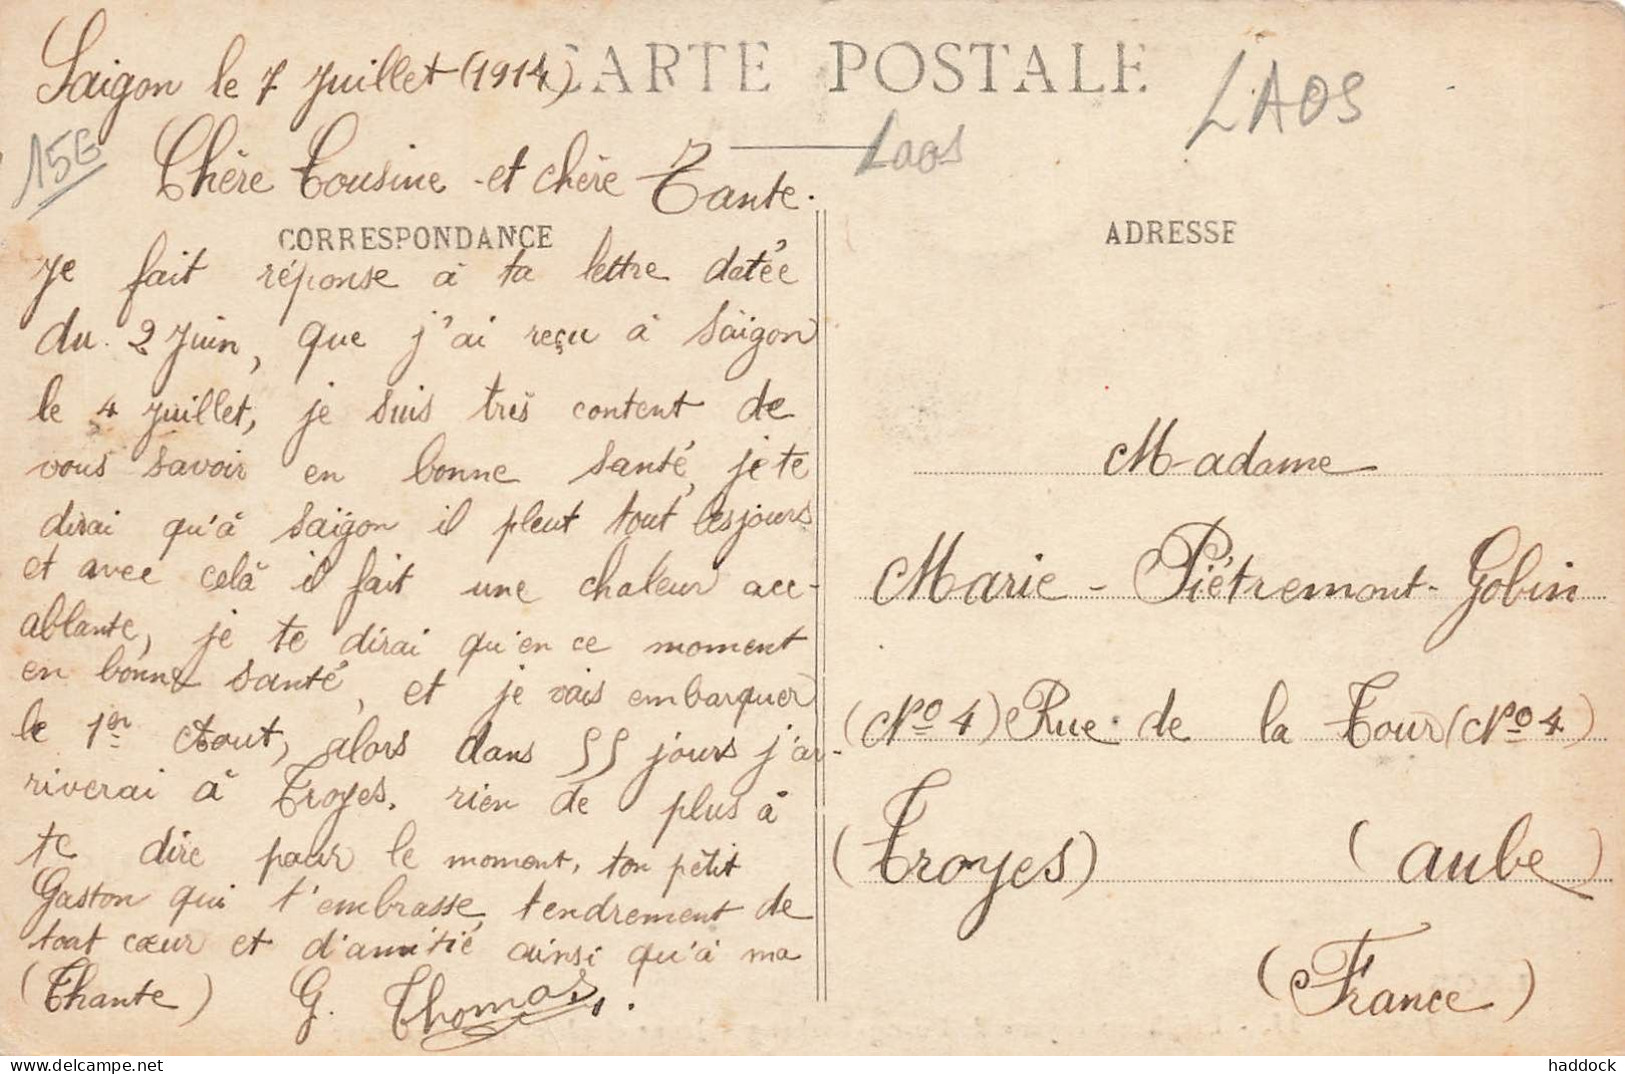 Saigon le 7 Juillet (1914)
CARTE POSTALE
LAOS
Laos
15E
Chère Cousine et chère Tante.
CORRESPONDANCE
ADRESSE
Je fait réponse à ta lettre datée
du 2 Juin, que j'ai reçu à Saïgon
le 4 Juillet, je suis très content de
vous savoir en bonne santé, je te
dirai qu'à Saïgon il pleut tout les jours
et avec celà il fait une chaleur acc-
ablante, je te dirai qu'en ce moment
en bonne santé, et je vais embarquer
le 1er Aout, alors dans 55 jours j'ar-
riverai à Troyes. rien de plus à
te dire pour le moment, ton pètit
Gaston qui t'embrasse, tendrement de
tout cœur et d'amitié ainsi qu'à ma
(Thante) G. Thomas.
Madame
Marie - Piétremont - Gobin
(No 4) Rue de la Tour (No 4)
(Troyes) (aube)
(France)
haddock
Delcampe.net